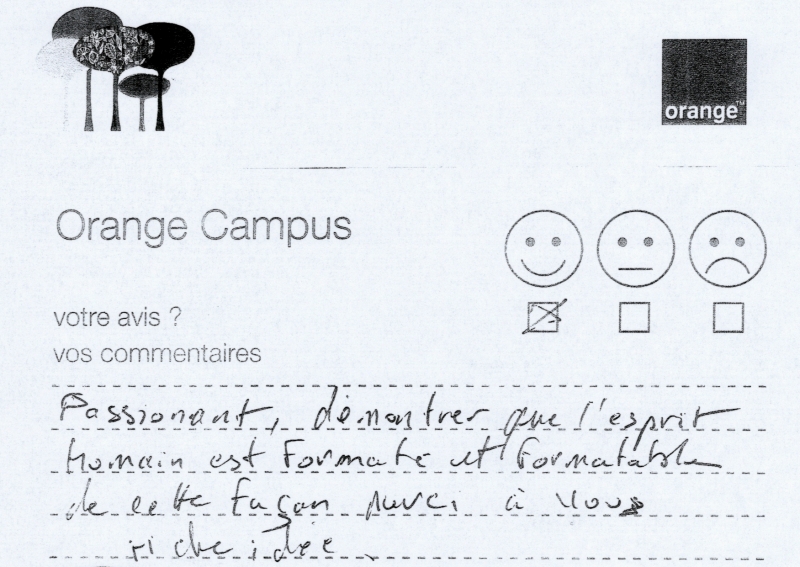 orange™
Orange Campus
votre avis ?
vos commentaires
Passionant, démontrer que l'esprit
Humain est Formaté et Formatable
de cette façon merci à vous
riche idée.